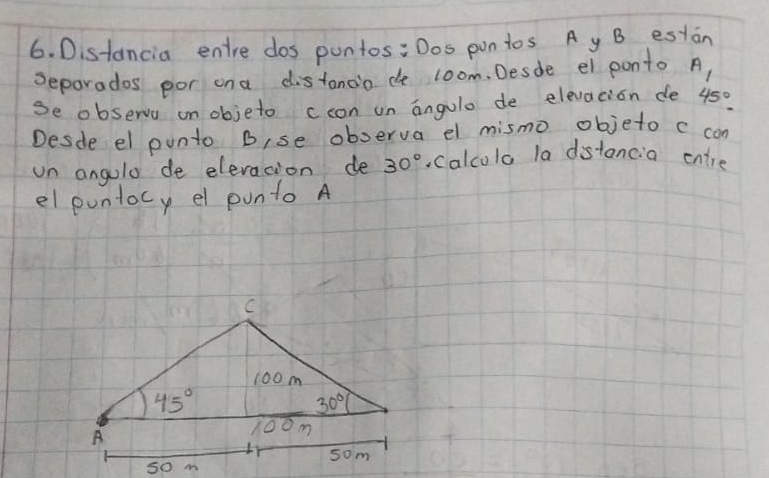 6. Distancia entre dos puntos: Dos puntos A y B están
separados por una distancia de 100m. Desde el punto A,
se observa un objeto c con un ángulo de elevación de 45°.
Desde el punto B, se observa el mismo objeto c con
un angulo de elevacion de 30°. Calcula la distancia entre
el punto c y el punto A
C
100 m
45°
30°
A
100 m
50 m
50m